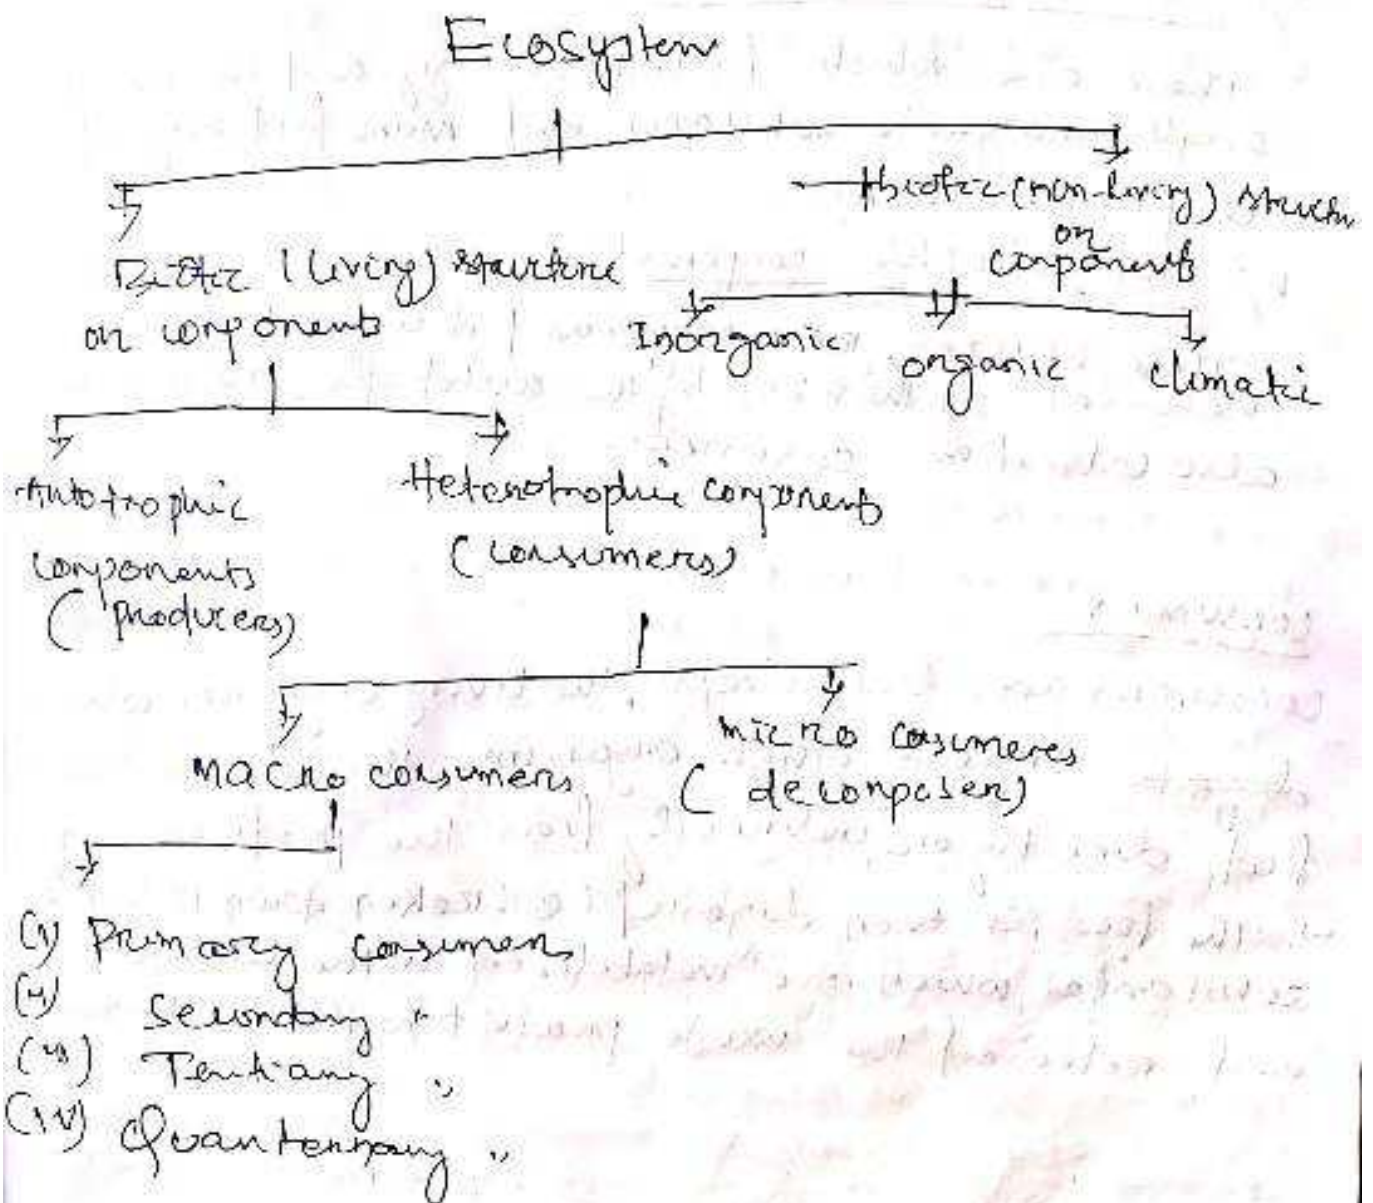 Ecosystem
Abiotic (non-living) structure
or
components
Biotic (living) structure
or components
Inorganic
organic
climatic
Autotrophic
components
(producers)
Heterotrophic components
(consumers)
macro consumers
micro cosumeres
(decomposer)
(i) Primary consumers
(ii) Secondary "
(iii) Tertiary "
(iv) Quarternary "